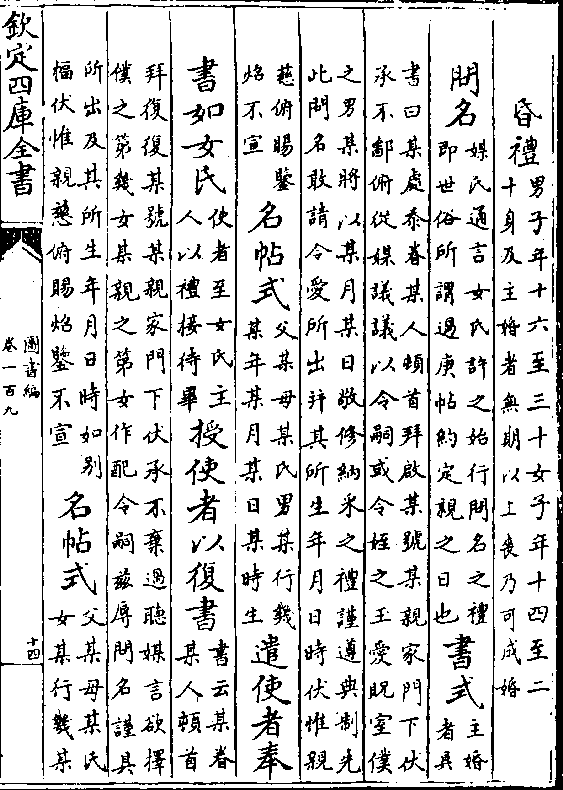 昏禮
男子年十六至三十女子年十四至二
十身及主婚者無期以上喪乃可成婚
問名
媒氏通言女氏許之始行問名之禮
即世俗所謂過庚帖約定親之日也
書式
主婚
者具
書曰某處忝眷某人頓首拜啟某號某親家門下伏
承不鄙俯從媒議議以令嗣或令姪之玉愛貺室僕
之男某將以某月某日敬修納采之禮謹遵典制先
此問名敢請令愛所出并其所生年月日時伏惟親
慈俯賜鑒
炤不宣
名帖式
父某母某氏男某行幾
某年某月某日某時生
遣使者奉
書如女氏
使者至女氏主
人以禮接待畢
授使者以復書
書云某眷
某人頓首
拜復復某號某親家門下伏承不棄過聽媒言欲擇
僕之第幾女某親之第女作配令嗣兹辱問名謹具
所出及其所生年月日時如别
楅伏惟親慈俯賜炤鑒不宣
名帖式
父某母某氏
女某行幾某
欽定四庫全書
圖書編
卷一百九
十四